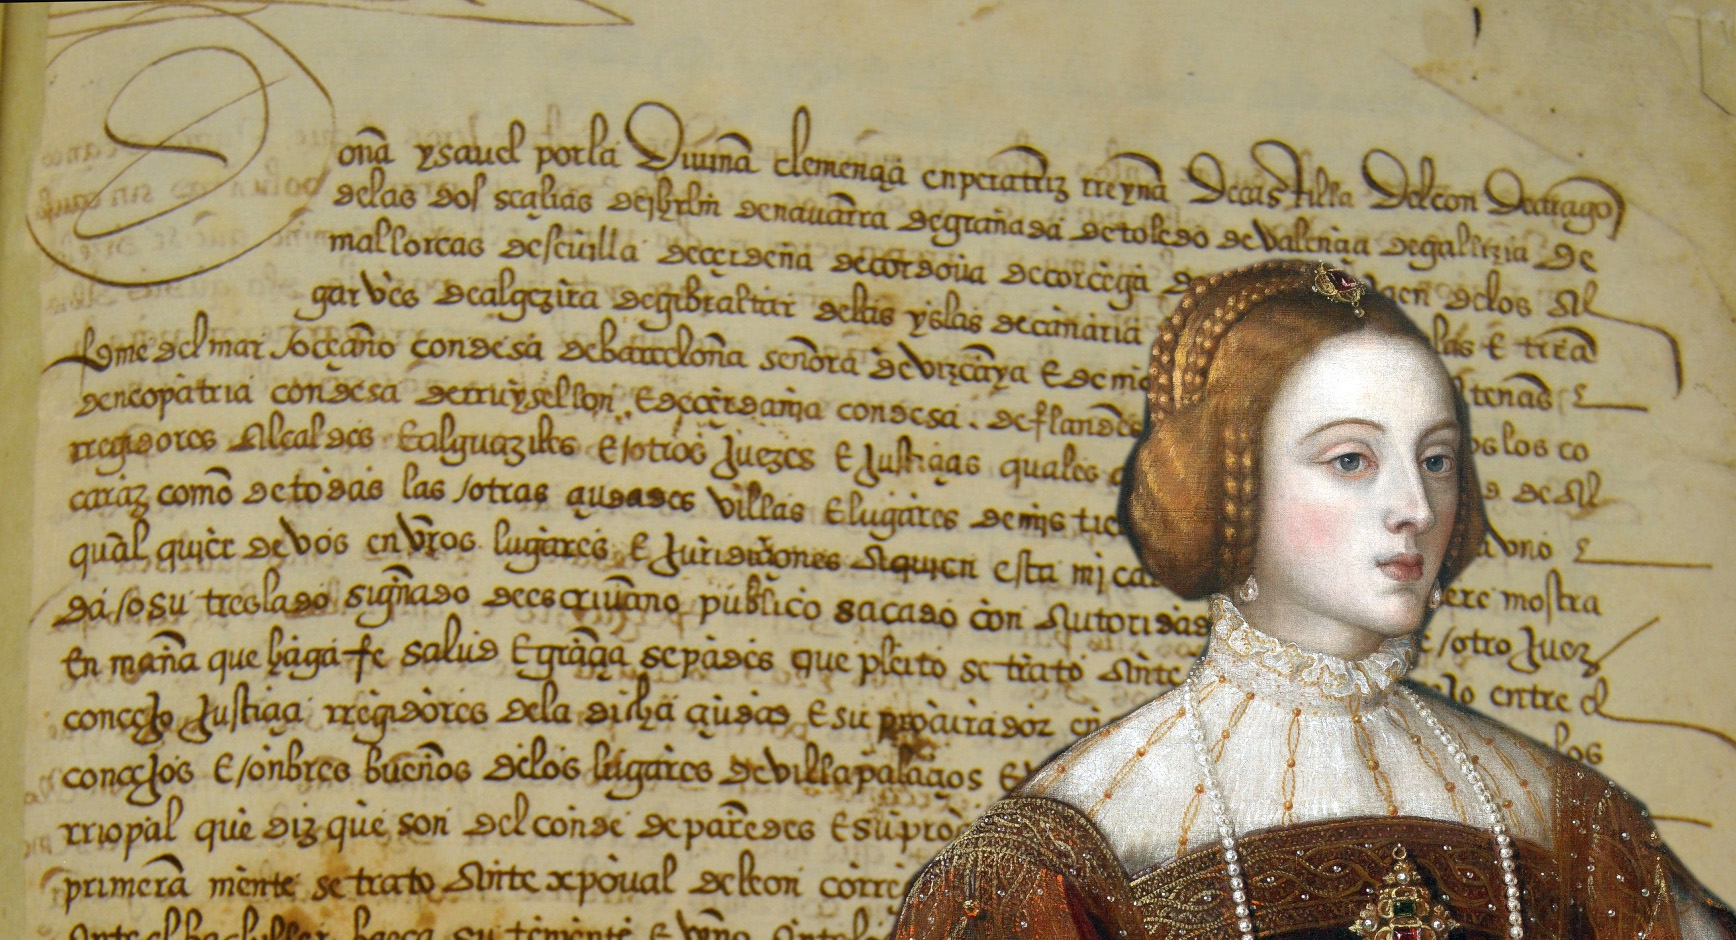 Dona ysauel por la Diuina clemençia enperatriz rreyna De castilla De leon De arago
de las dos scalias de jhrlm de nauarra de granada de toledo de valençia de galizia de
mallorcas de seuilla de çerdeña de cordoua de corcega de Jaen de los Al
garves de algezira de gibraltar de las yslas de canaria las E tierra
firme del mar oçeano condesa de barçelona señora de vizcaya E de mo tenas E
de neopatria condesa de rruysellon E de çerdania condesa de flandes
rregidores Alcaldes E alguaziles E otros Juezes E Justiçias quales os los co
caraz como de todas las otras çiudades villas E lugares de mis tie de Al
qual quier de vos en vros lugares E Juridiçiones A quien esta mi ca a vno
da o su treslado signado de escriuano publico sacado con Autoridad ere mostra
En mana que haga fe salud E graçia sepades que pleito se trato Ante E otro Juez
conçejo Justiçia rregidores de la dicha çiudad E su procurador en lo entre el
conçejos E onbres buenos de los lugares de villapalaçios E los
rriopal que diz que son del conde de paredes E su pro
primera mente se trato Ante xpoual de leon corre
Ante el bachiller baeça su teniente E